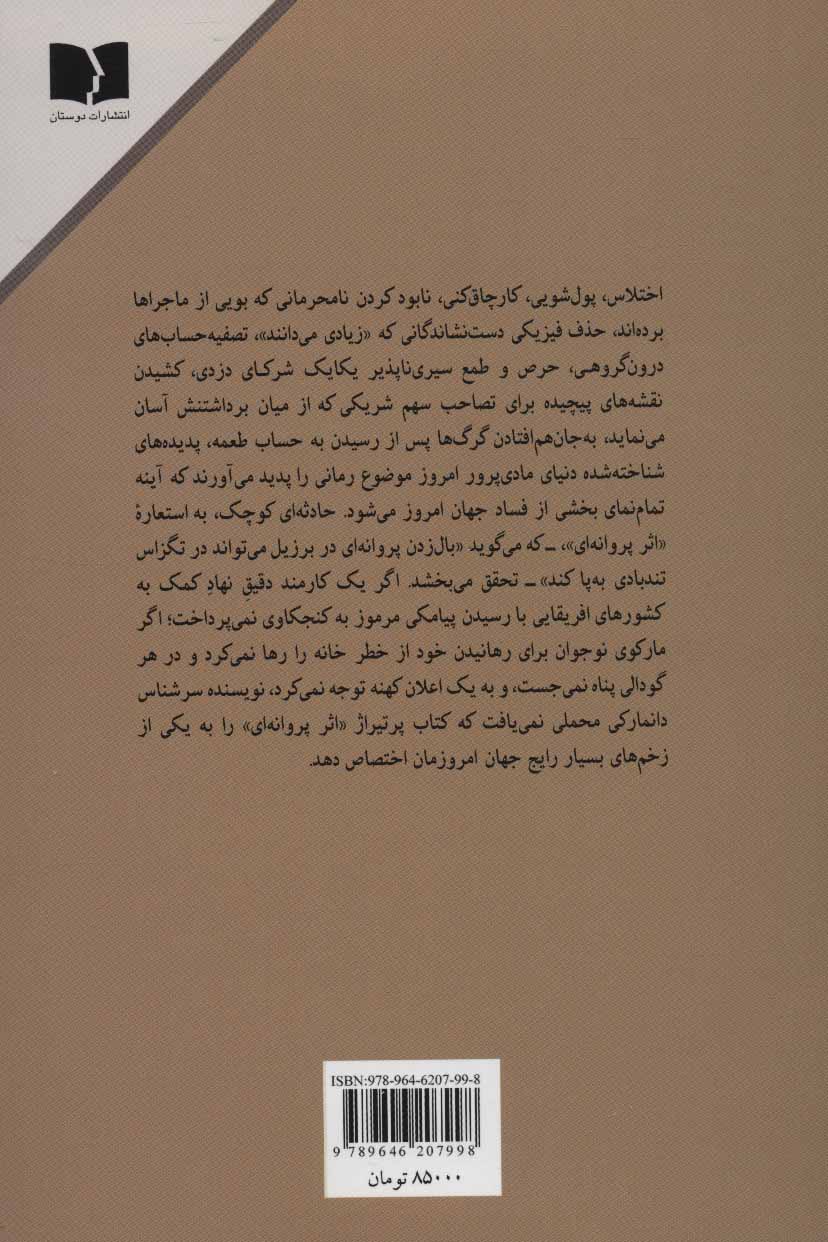 انتشارات دوستان
اختلاس، پول‌شویی، کارچاق‌کنی، نابود کردن نامحرمانی که بویی از ماجراها
برده‌اند، حذف فیزیکی دست‌نشاندگانی که «زیادی می‌دانند»، تصفیه‌حساب‌های
درون‌گروهی، حرص و طمع سیری‌ناپذیر یکایک شرکای دزدی، کشیدن
نقشه‌های پیچیده برای تصاحب سهم شریکی که از میان برداشتنش آسان
می‌نماید، به‌جان‌هم‌افتادن گرگ‌ها پس از رسیدن به حساب طعمه، پدیده‌های
شناخته‌شده دنیای مادی‌پرور امروز موضوع رمانی را پدید می‌آورند که آینه
تمام‌نمای بخشی از فساد جهان امروز می‌شود. حادثه‌ای کوچک، به استعارهٔ
«اثر پروانه‌ای»، ــ که می‌گوید «بال‌زدن پروانه‌ای در برزیل می‌تواند در تگزاس
تندبادی به‌پا کند» ــ تحقق می‌بخشد. اگر یک کارمند دقیقِ نهادِ کمک به
کشورهای افریقایی با رسیدن پیامکی مرموز به کنجکاوی نمی‌پرداخت؛ اگر
مارکوی نوجوان برای رهانیدن خود از خطر خانه را رها نمی‌کرد و در هر
گودالی پناه نمی‌جست، و به یک اعلان کهنه توجه نمی‌کرد، نویسنده سرشناس
دانمارکی محملی نمی‌یافت که کتاب پرتیراژ «اثر پروانه‌ای» را به یکی از
زخم‌های بسیار رایج جهان امروزمان اختصاص دهد.
ISBN:978-964-6207-99-8
9 789646 207998
۸۵۰۰۰ تومان